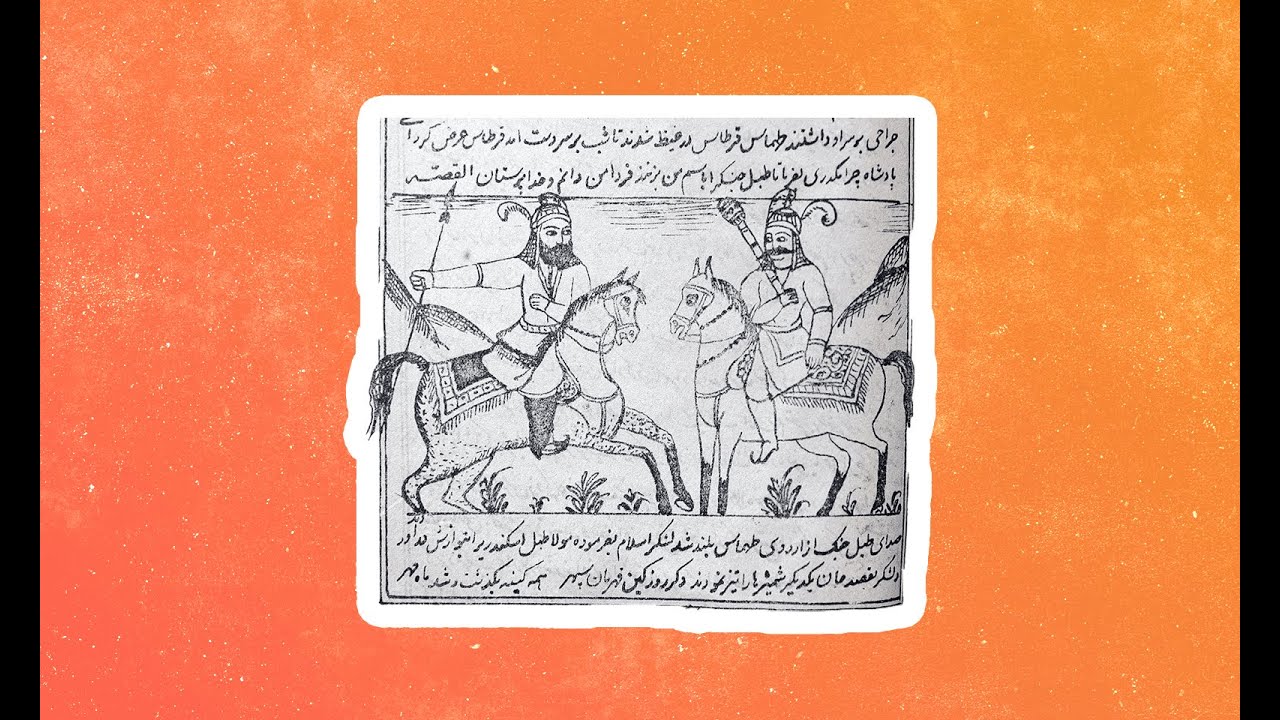 جراحی بر سر او داشتند طهماس قرطاس در غیظ شدند تا شب بر سر دست آمد قرطاس عرض کرد ای
پادشاه چرا مکدری بفرما تا طبل جنک را باسم من بزنند فردا من دانم و خداپرستان القصّه
صدای طبل جنک از اردوی طهماس بلند شد لشکر اسلام بفرموده مولا طبل اسکندر بنوازش در آورد
و لشکر بقصد جان یکدیکر شمشیرها را تیز نمودند دکر روز کین قهرمان سپهر همه کینه بکذشت و شد ماه مهر